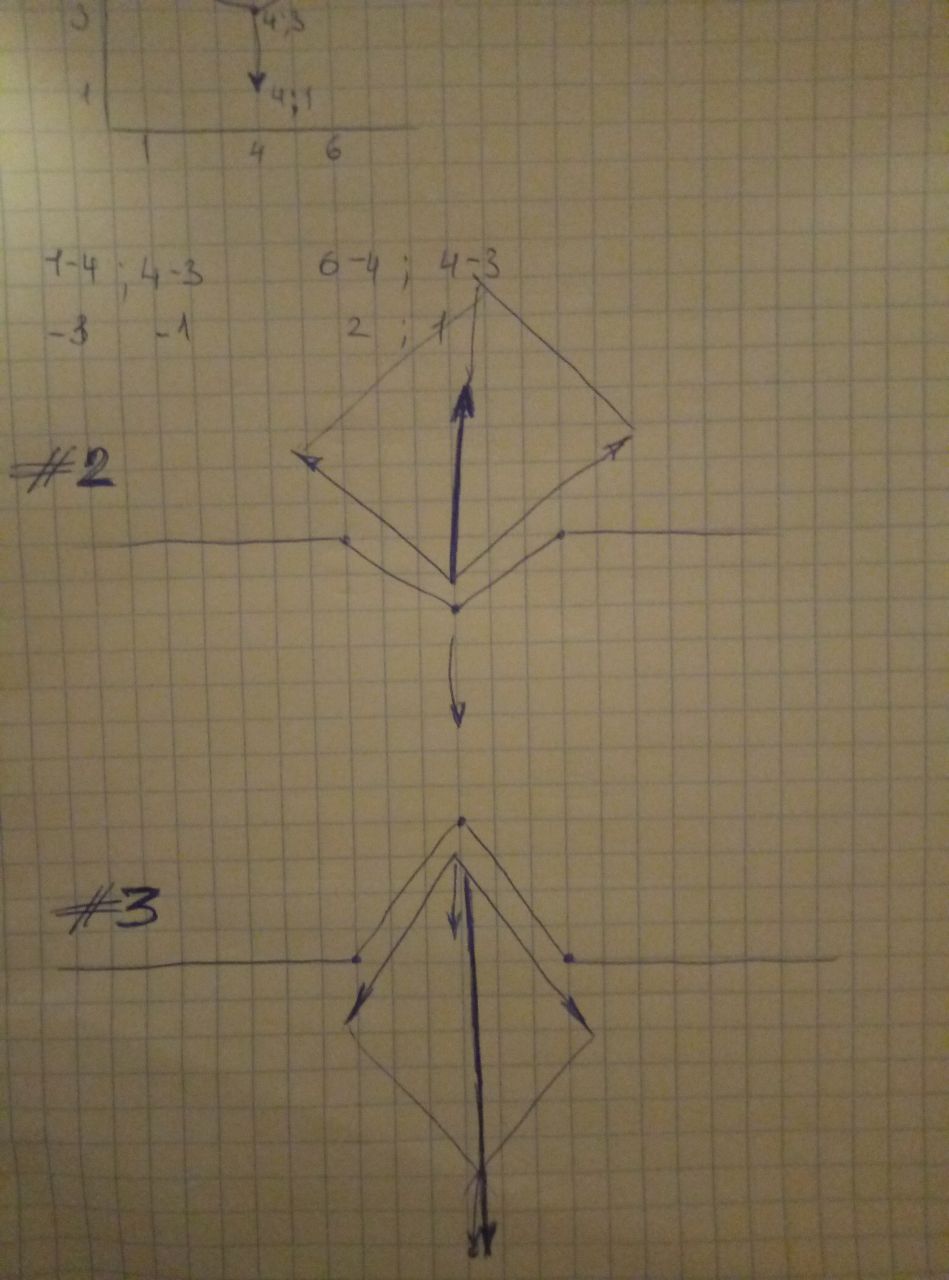 3 4;3
1 4;1
1 4 6
1-4 ; 4-3 6-4 ; 4-3
-3 -1 2 ; 1
#2
#3